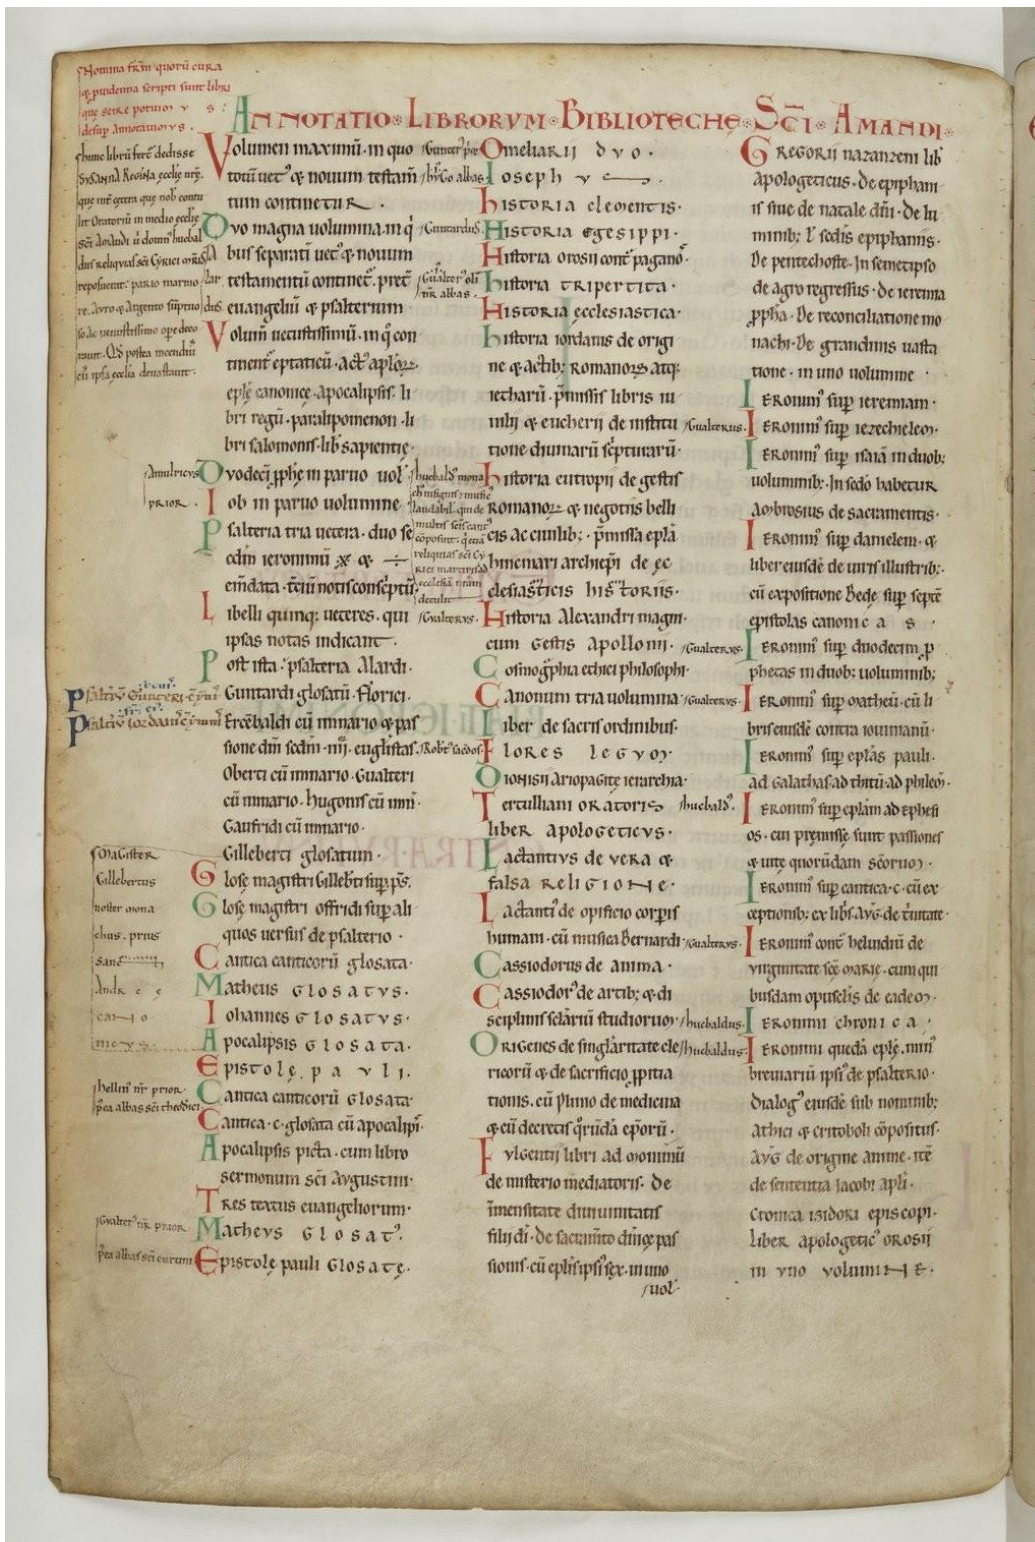 Nomina frm̄ quorū cura
& ꝓuidentia scripti sunt libri
que scire potuim v s:
desup annotauim v s.
ANNOTATIO LIBRORVM BIBLIOTECHĘ SC̄I AMANDI
hunc librū fert̄ dedisse
SVSANNA Regina ęcclię nrę̄.
lit Oratoriū in medio ecclię
sc̄i Amandi
dus reliquias sc̄i Cyrici
reposuerat pario marmo
re. Auro & Argento
so ac uenustissimo opere deco
cū ipsa ęcclia deuastauit.
Volumen maximū. in quo
totū uet' & nouum testam̄
tum continetur.
Duo magna uolumina. in q̇
bus separati uet' & nouum
testamentū continet̄. pret̄
euangeliū & psalterium
Volum̄ uetustissimū. in q̇ con
tinent̄ eptaticū. act' aplōꝝ.
eplę̄ canonicę. apocalipsis. li
bri regū. paralipomenon. li
bri salomonis. lib̄ sapientię.
Amulricus
prior.
Duodecī ꝓphę in paruo uol'
Iob in paruo uolumine
Psalteria tria uetera. duo se
cdm̄ ieronimū ※ & ÷
em̄data. t̄ciū notis conscriptū.
Libelli quinq; ueteres. qui
ipsas notas indicant.
Post ista: psalteria Alardi.
Guntardi glosatū. Florici.
Ercēbaldi cū innario & pas
sione dn̄i sedm̄. iiii. eug̅listas.
Oberti cū innario. Gualteri
cū innario. hugonis cū inni
Gaufridi cū innario.
Gilleberti glosatum.
Magister
Gillebertus
noster mona
chus. prius
Andr e ę
cano
nicvs.
Glosę magistri Gilleb̄ti sup ps̄.
Glosę magistri offridi sup ali
quos uersus de psalterio.
Cantica canticorū glosata.
Matheus GLOSATVS.
Iohannes GLOSATVS.
Apocalipsis GLOSATA.
Epistolę pavli.
hellin' nr̄ prior.
p̄ea abbas sc̄i theodrici
Cantica canticorū GLOSATA
Cantica. c. glosata cū apocalip̄.
Apocalipsis picta. cum libro
sermonum sc̄i Avgustini.
Tres textus euangeliorum.
Gualter' nr̄ prior.
Mathevs GLOSAT'.
Epistolę pauli GLOSATĘ.
hvgo abbas
Omeliarii dvo.
Ioseph vs.
historia clementis.
Guntardus
Historia EGESIPPI.
Historia orosii cont̄ paganō.
Gualter' oli
nr̄ abbas.
historia TRIPERTITA.
Historia ęcclesiastica.
historia iordanis de origi
ne & actib; romanoꝝ atq;
ietharū. p̄missis libris iu
nilii & eucherii de institu
tione diuinarū sc̄ripturarū.
hucbald' mona
historia eutropii de gestis
romanoꝝ & negotiis belli
cis ac ciuilib;. p̄missa eplā
hincmari archiep̄i de ęc
clesiasticis historiis.
Gvaltervs.
Historia Alexandri magni.
cum gestis Apollonii.
Cosmog̅phia ethici philosophi.
Canonum tria uolumina
Liber de sacris ordinibus.
Rob't' sacdos.
Flores legvm.
Dionisii Ariopagitę ierarchia.
Tertulliani ORATORIS
liber apologeticvs.
Lactantivs de vera &
falsa religione.
Lactanti' de opificio corp̄is
humani. cū musica Bernardi.
Cassiodorus de anima.
Cassiodor' de artib; & di
sciplinis
Origenes de sing̅laritate cle
ricorū & de sacrificio ꝓpitia
tionis. cū plinio de medicina
& cū decretis q̇rūdā ep̄orū.
Fvlgentii libri ad monimū
de misterio mediatoris. De
īmensitate diuinitatis
filii dī. de sacram̄to dn̄icę pas
sionis. cū epl̄is ipsi' sex. in uno
uol'.
GREGORII nazanzeni lib̄
apologeticus. de epiphani
is siue de natale dn̄i. de lu
minib; ł sc̄dis epiphaniis.
De pentechoste. In semetipso
de agro regressus. de ieremia
ꝓpha. De reconciliatione mo
nachi. De grandinis uasta
tione. in uno uolumine
IERONIM' sup ieremiam.
Gualterus.
IERONIM' sup iezechielem.
IERONIM' sup isaiā in duob;
uoluminib;. In sc̄do habetur
Ambrosius de sacramentis.
IERONIM' sup danielem. &
liber eiusdē de uiris illustrib;.
cū expositione Bede sup septē
epistolas canonicas.
Gualtervs.
IERONIM' sup duodecim ꝓ
phetas in duob; uoluminib;
Gualtervs.
IERONIM' sup matheū. cū li
bris eiusdē contra iouinianū.
IERONIM' sup eplas pauli.
ad Galathas. ad thitū. ad philem̄.
hucbald'.
IERONIM' sup eplam ad ephesi
os. cui pręmissę sunt passiones
& uitę quorūdam sc̄orum.
IERONIM' sup cantica. c. cū ex
ceptionib; ex lib̄s Avḡ. de ciuitate.
Gualtervs.
IERONIM' cont̄ heluidiū de
virginitate sc̄ę marię. cum qui
busdam opusclis de eadem.
hucbaldus.
IERONIMI chronica.
hucbaldus.
IERONIMI quedā eplę. inni
breuiariū ipsi' de psalterio.
Dialog' eiusdē sub nominib;
athici & critoboli cōpositus.
Avḡ de origine anime. itē
de sententia iacobi apl̄i.
cronica isidori episcopi.
liber apologetic' orosii
in vno volumine.